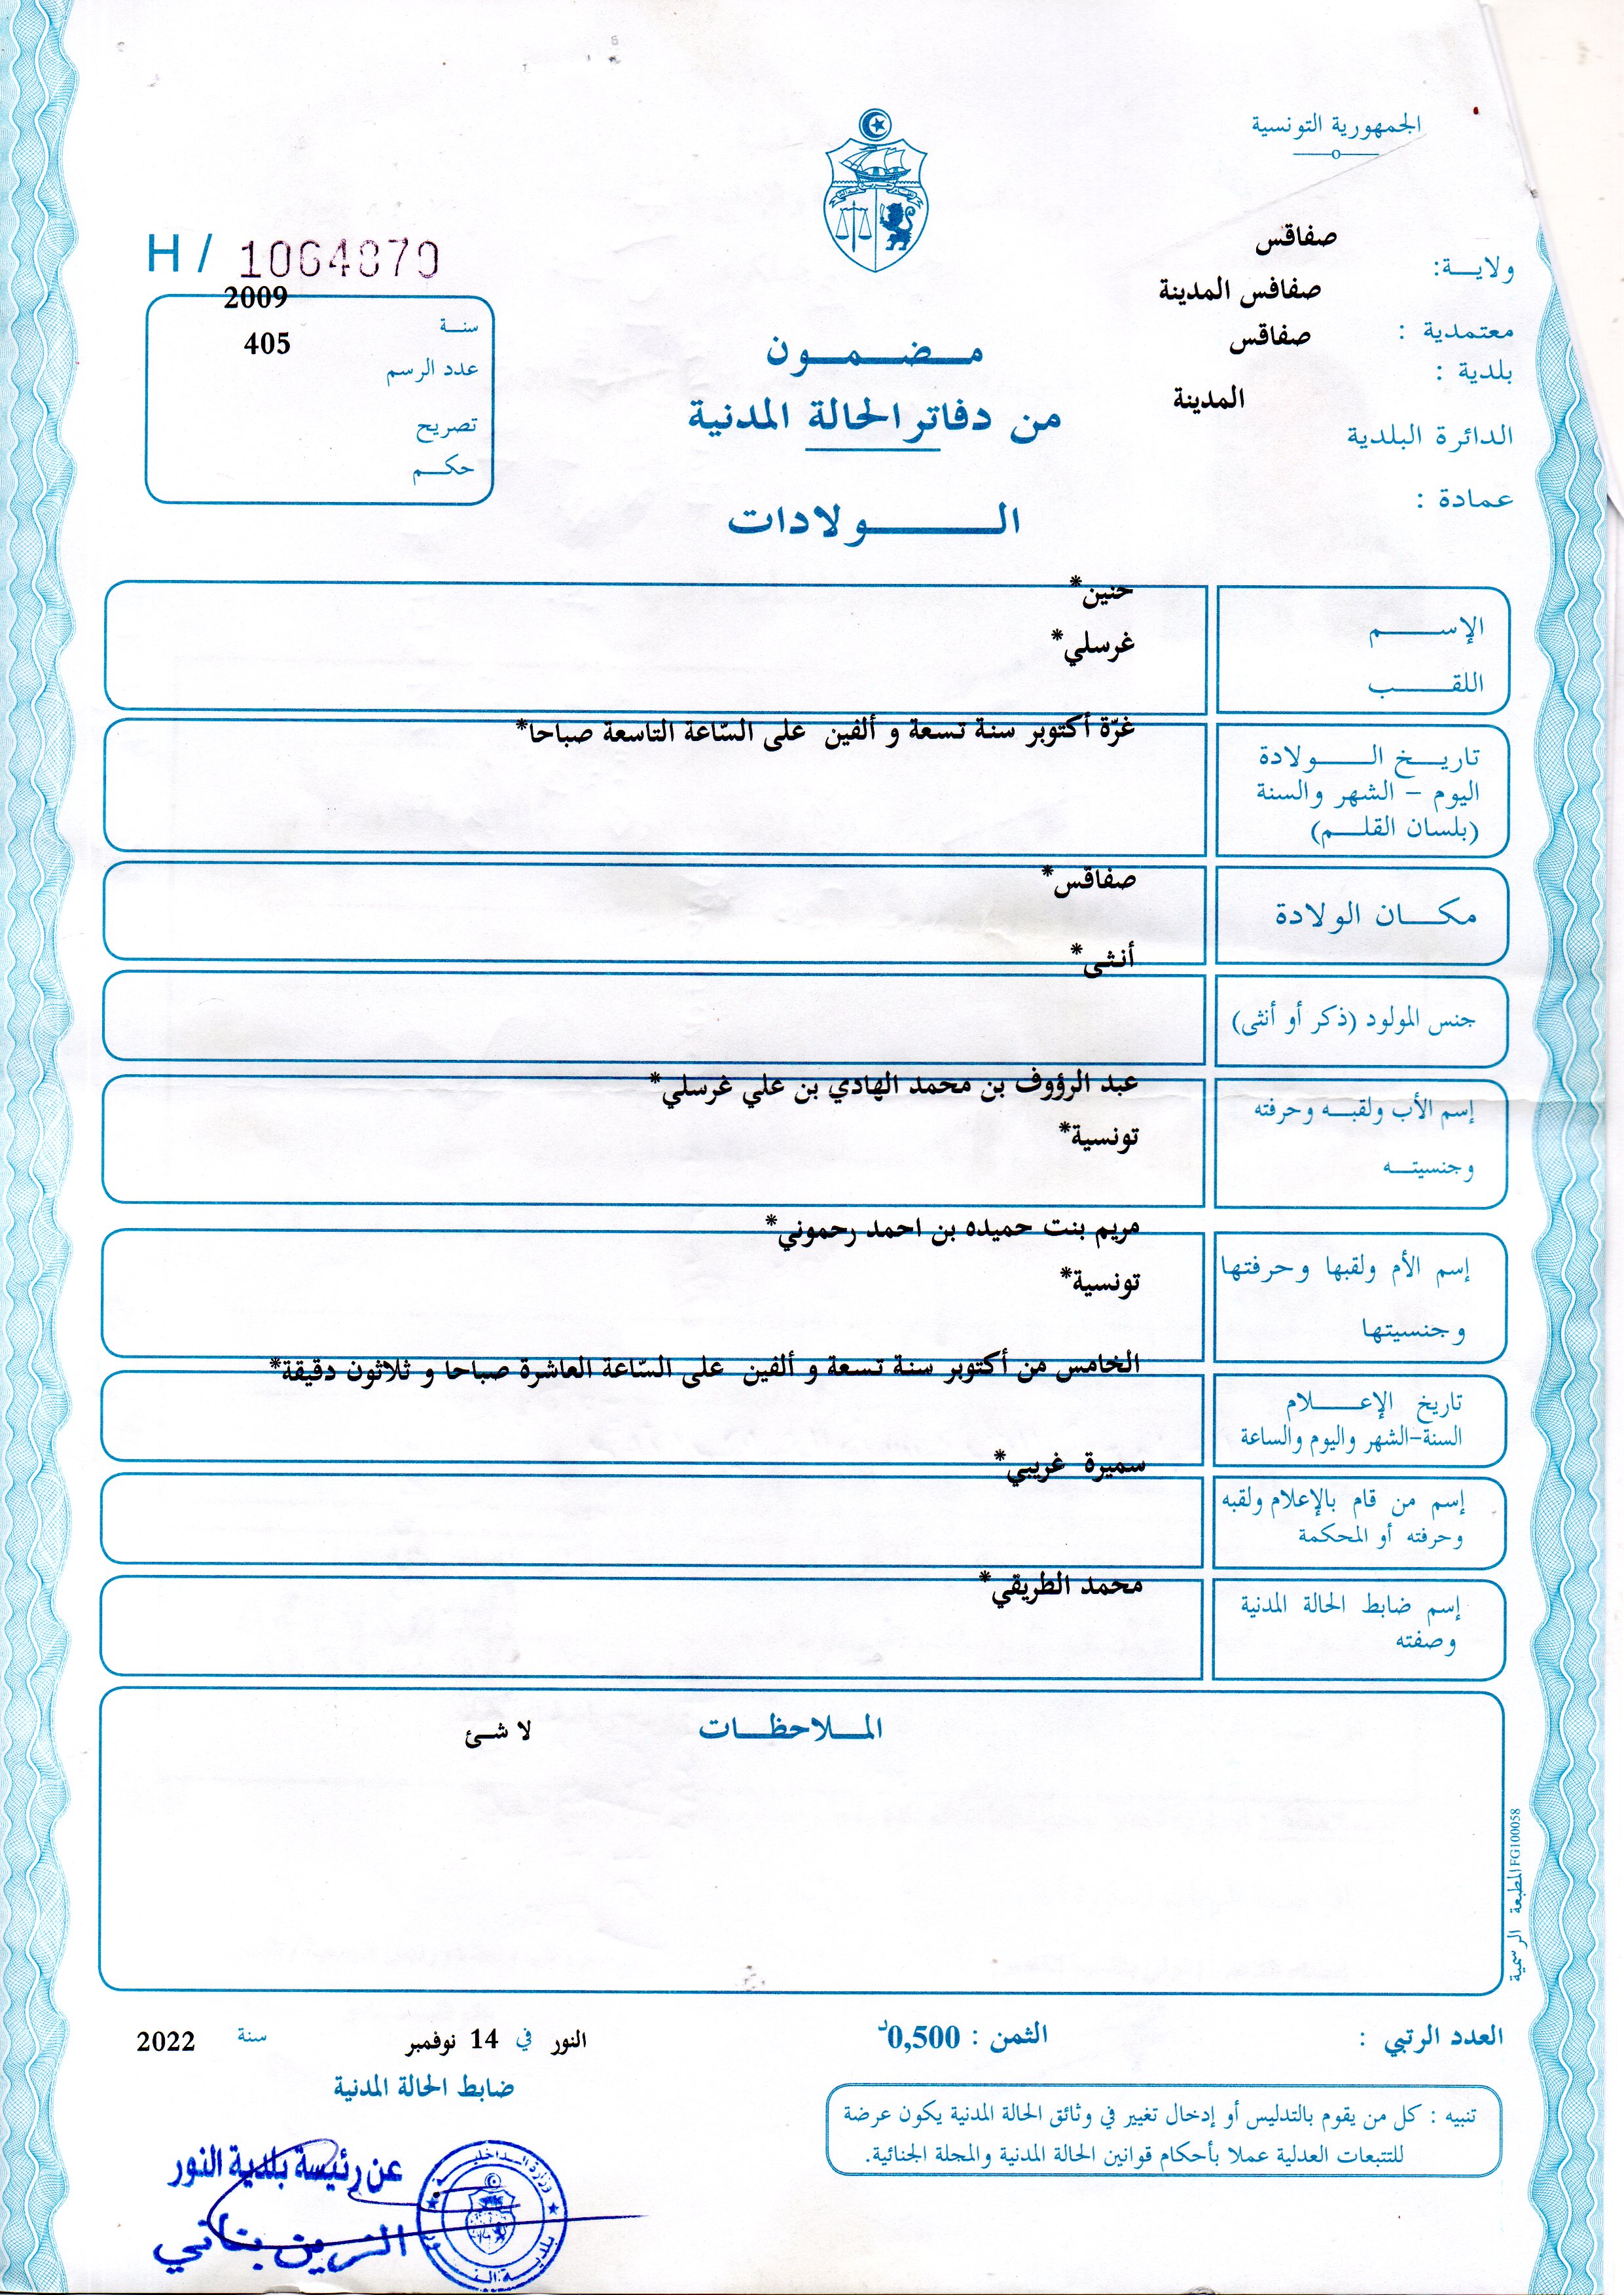 الجمهورية التونسية
ولايـــة: صفاقس
معتمدية : صفاقس المدينة
بلدية : صفاقس
الدائرة البلدية المدينة
عمادة :
H / 1064870
سنــة 2009
عدد الرسم 405
تصريح
حكــم
مـضـمـون
من دفاتر الحالة المدنية
الـولادات
الإســـم حنين*
اللقـــب غرسلي*
تاريـخ الـــولادة
اليوم – الشهر والسنة
(بلسان القلــم)
غرّة أكتوبر سنة تسعة و ألفين على السّاعة التاسعة صباحا*
مكــان الولادة صفاقس*
جنس المولود (ذكر أو أنثى) أنثى*
إسم الأب ولقبـه وحرفته عبد الرؤوف بن محمد الهادي بن علي غرسلي*
وجنسيتــه تونسية*
إسم الأم ولقبها وحرفتها مريم بنت حميده بن احمد رحموني*
وجنسيتها تونسية*
تاريخ الإعـــلام
السنة-الشهر واليوم والساعة
الخامس من أكتوبر سنة تسعة و ألفين على السّاعة العاشرة صباحا و ثلاثون دقيقة*
إسم من قام بالإعلام ولقبه
وحرفته أو المحكمة
سميرة غريبي*
إسم ضابط الحالة المدنية
وصفته
محمد الطريقي*
المـلاحظـات
لا شئ
المطبعة الرسمية FG100058
العدد الرتبي :
الثمن : 0,500د
النور في 14 نوفمبر سنة 2022
ضابط الحالة المدنية
تنبيه : كل من يقوم بالتدليس أو إدخال تغيير في وثائق الحالة المدنية يكون عرضة
للتتبعات العدلية عملا بأحكام قوانين الحالة المدنية والمجلة الجنائية.
عن رئيسة بلدية النور
وزارة الداخلية